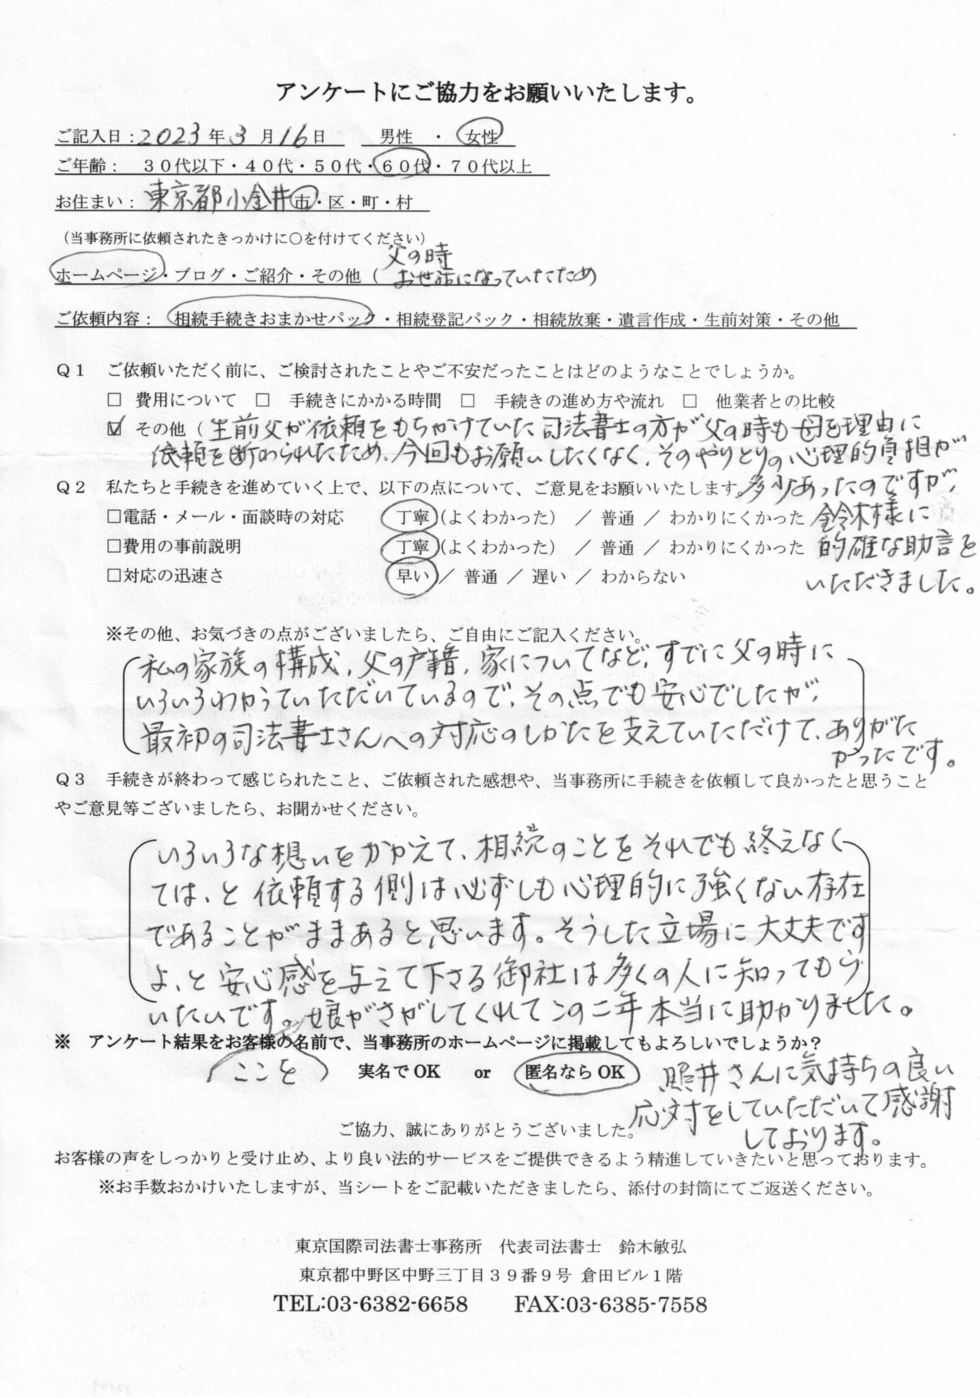 アンケートにご協力をお願いいたします。
ご記入日：2023年3月16日　男性　・　女性
ご年齢：　３０代以下・４０代・５０代・６０代・７０代以上
お住まい：東京都小金井市・区・町・村
（当事務所に依頼されたきっかけに○を付けてください）
父の時
ホームページ・ブログ・ご紹介・その他（お世話になっていたため
ご依頼内容：　相続手続きおまかせパック・相続登記パック・相続放棄・遺言作成・生前対策・その他
Ｑ１　ご依頼いただく前に、ご検討されたことやご不安だったことはどのようなことでしょうか。
□　費用について　□　手続きにかかる時間　□　手続きの進め方や流れ　□　他業者との比較
☑　その他（生前父が依頼をもちかけていた司法書士の方が父の時も母を理由に
依頼を断められたため、今回もお願いしたくなく、そのやりとりの心理的負担が
Ｑ２　私たちと手続きを進めていく上で、以下の点について、ご意見をお願いいたします。多少あったのですが、
□電話・メール・面談時の対応　丁寧（よくわかった）　／　普通　／　わかりにくかった　鈴木様に
□費用の事前説明　丁寧（よくわかった）　／　普通　／　わかりにくかった　的確な助言を
□対応の迅速さ　早い　／　普通　／　遅い　／　わからない　いただきました。
※その他、お気づきの点がございましたら、ご自由にご記入ください。
私の家族の構成、父の戸籍、家についてなど、すでに父の時に
いろいろわかっていただいているので、その点でも安心でしたが、
最初の司法書士さんへの対応のしかたを支えていただけて、ありがた
かったです。
Ｑ３　手続きが終わって感じられたこと、ご依頼された感想や、当事務所に手続きを依頼して良かったと思うこと
やご意見等ございましたら、お聞かせください。
いろいろな想いをかかえて、相続のことをそれでも終えなく
ては、と依頼する側は必ずしも心理的に強くない存在
であることがままあると思います。そうした立場に大丈夫です
よ、と安心感を与えて下さる御社は多くの人に知ってもら
いたいです。娘がさがしてくれてこの二年本当に助かりました。
※　アンケート結果をお客様の名前で、当事務所のホームページに掲載してもよろしいでしょうか？
ことを　実名でOK　or　匿名ならOK　照井さんに気持ちの良い
応対をしていただいて感謝
しております。
ご協力、誠にありがとうございました。
お客様の声をしっかりと受け止め、より良い法的サービスをご提供できるよう精進していきたいと思っております。
※お手数おかけいたしますが、当シートをご記載いただきましたら、添付の封筒にてご返送ください。
東京国際司法書士事務所　代表司法書士　鈴木敏弘
東京都中野区中野三丁目３９番９号 倉田ビル１階
TEL:03-6382-6658　FAX:03-6385-7558